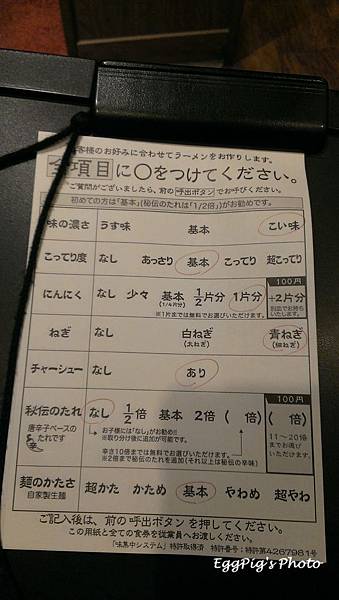 お客様のお好みに合わせてラーメンをお作りします。
全項目に〇をつけてください。
ご質問がございましたら、前の呼出ボタンでお呼びください。
初めての方は「基本」(秘伝のたれは「1/2倍」)がお勧めです。
味の濃さ うす味 基本 こい味
こってり度 なし あっさり 基本 こってり 超こってり
にんにく なし 少々 基本 1/2片分 1片分
(1/4片分)
※1片までは無料でお選びいただけます。
100円
+2片分
別皿でお持ち
いたします。
ねぎ なし 白ねぎ 青ねぎ
(太ねぎ) (細ねぎ)
チャーシュー なし あり
秘伝のたれ なし 1/2倍 基本 2倍 ( 倍)
唐辛子ベースの
たれです
お子様には「なし」がお勧め※
※取り分け後に追加が可能です。
辛さ10倍までは無料でお選びいただけます。
※2倍まで秘伝のたれを追加(それ以上は秘伝の辛味)
100円
( 倍)
11〜20倍
までお選び
いただけます。
麺のかたさ 超かた かため 基本 やわめ 超やわ
自家製生麺
ご記入後は、前の呼出ボタンを押してください。
この用紙と全ての食券を従業員へお渡しください。
「味集中システム」特許取得済 特許番号:特許第4267981号
EggPig's Photo